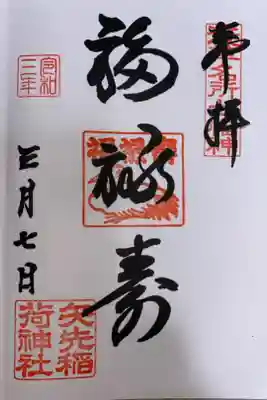 奉拝
福禄寿
令和
三年
月七日
矢先稲
荷神社